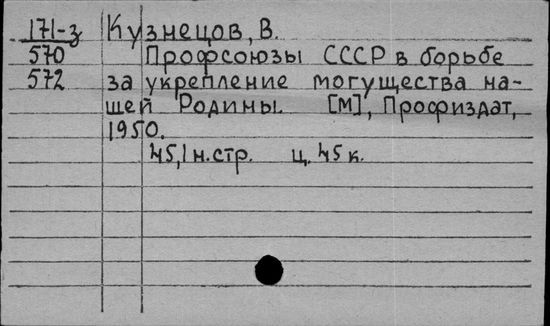 171-з Кузнецов, В.
570 Профсоюзы СССР в борьбе
572 за укрепление могущества на-
шей Родины. [М], Профиздат,
1950.
45,1 н.стр. ц. 45 к.